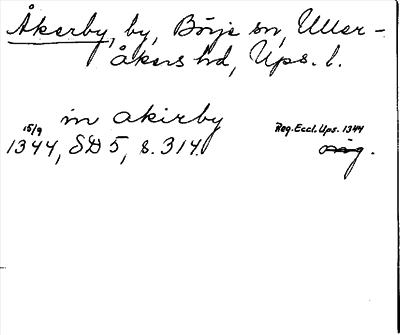 Åkerby, by, Börje sn, Uller-
åkers hd, Ups. l.
in akirby
15/9 Reg. Eccl. Ups. 1344
1344, SD 5, s. 314. orig.